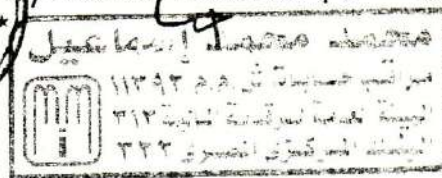 محمد محمد إسماعيل
مراقب حسابات س.م.م ١١٣٩٣
الهيئة العامة للرقابة المالية ٣١٢
البنك المركزى المصرى ٣٢٢